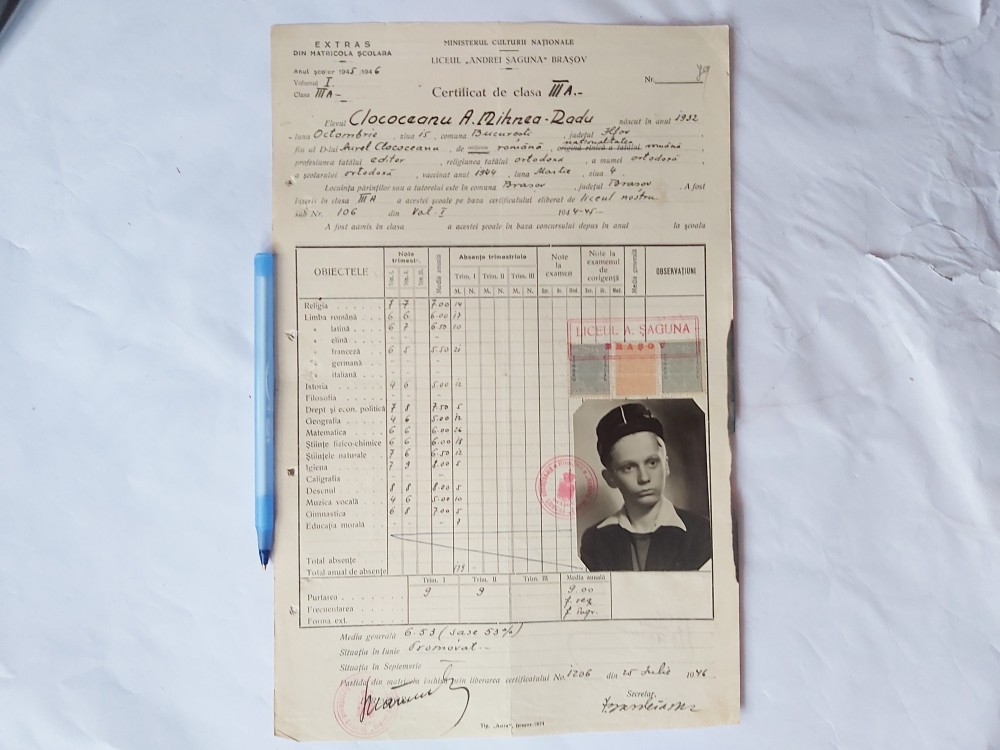 EXTRAS
DIN MATRICOLA ȘCOLARA
Anul școlar 1945/1946
Volumul I.
Clasa III A -
MINISTERUL CULTURII NAȚIONALE
LICEUL „ANDREI ȘAGUNA" BRAȘOV
Nr. 89
Certificat de clasa III A.-
Elevul Clococeanu A. Mihnea-Radu născut în anul 1932
luna Octombrie, ziua 15, comuna București, județul Ilfov
fiu al D-lui Aurel Clococeanu, de română, naționalitatea originea etnică a tatălui română
profesiunea tatălui editor, religiunea tatălui ortodoxă, a mamei ortodoxă
a școlarului ortodoxă, vaccinat anul 1944, luna Martie, ziua 4.
Locuința părinților sau a tutorelui este în comuna Brașov, județul Brașov. A fost
înscris în clasa III A a acestei școale pe baza certificatului eliberat de liceul nostru
sub Nr. 106 din Vol. I 1944-45-
A fost admis în clasa a acestei școale în baza concursului depus în anul la școala
OBIECTELE Note trimestr. Media anuală Absențe trimestriale Note la examen Note la examenul de corigență Media generală OBSERVAȚIUNI
Trim. I. Trim. II. Trim. III. Trim. I Trim. II Trim. III
M. N. M. N. M. N. Scr. Or. Med. Scr. Or. Med.
Religia 7 7 7.00 14
Limba română 6 6 6.00 17
„ latină 6 7 6.50 10
„ elină - - -
„ franceză 6 5 5.50 21
„ germană - - -
„ italiană - - -
Istoria 4 6 5.00 12
Filosofia - - -
Drept și econ. politică 7 8 7.50 5
Geografia 4 6 5.00 12
Matematica 6 6 6.00 26
Științe fizico-chimice 6 6 6.00 18
Științele naturale 7 6 6.50 12
Igiena 7 9 8.00 5
Caligrafia - - -
Desenul 8 8 8.00 5
Muzica vocală 4 6 5.00 10
Gimnastica 6 8 7.00 5
Educația morală - - - 7
LICEUL A. ȘAGUNA
BRAȘOV
Total absențe
Total anual de absențe 179
Trim. I Trim. II Trim. III Media anuală
Purtarea 9 9 9.00
Frecuentarea
Forma ext.
Media generală 6.53 (șase 53%)
Situația în Iunie Promovat -
Situația în Septemvrie -
Partida din matricola închisă prin liberarea certificatului No. 1206 din 25 Iulie 1946
Secretar,